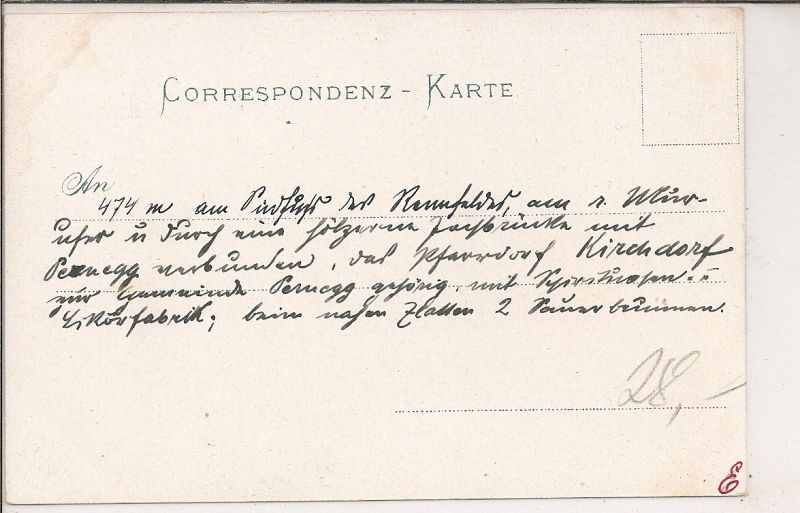 CORRESPONDENZ - KARTE
An
474 m am Südfuß des Rennfeldes, am r. Mur-
ufer u durch eine hölzerne Jochbrücke mit
Pernegg verbunden, das Pfarrdorf Kirchdorf
zur Gemeinde Pernegg gehörig, mit Spirituosen- u
Likörfabrik; beim nahen Zlatten 2 Sauerbrunnen.
28,-
E